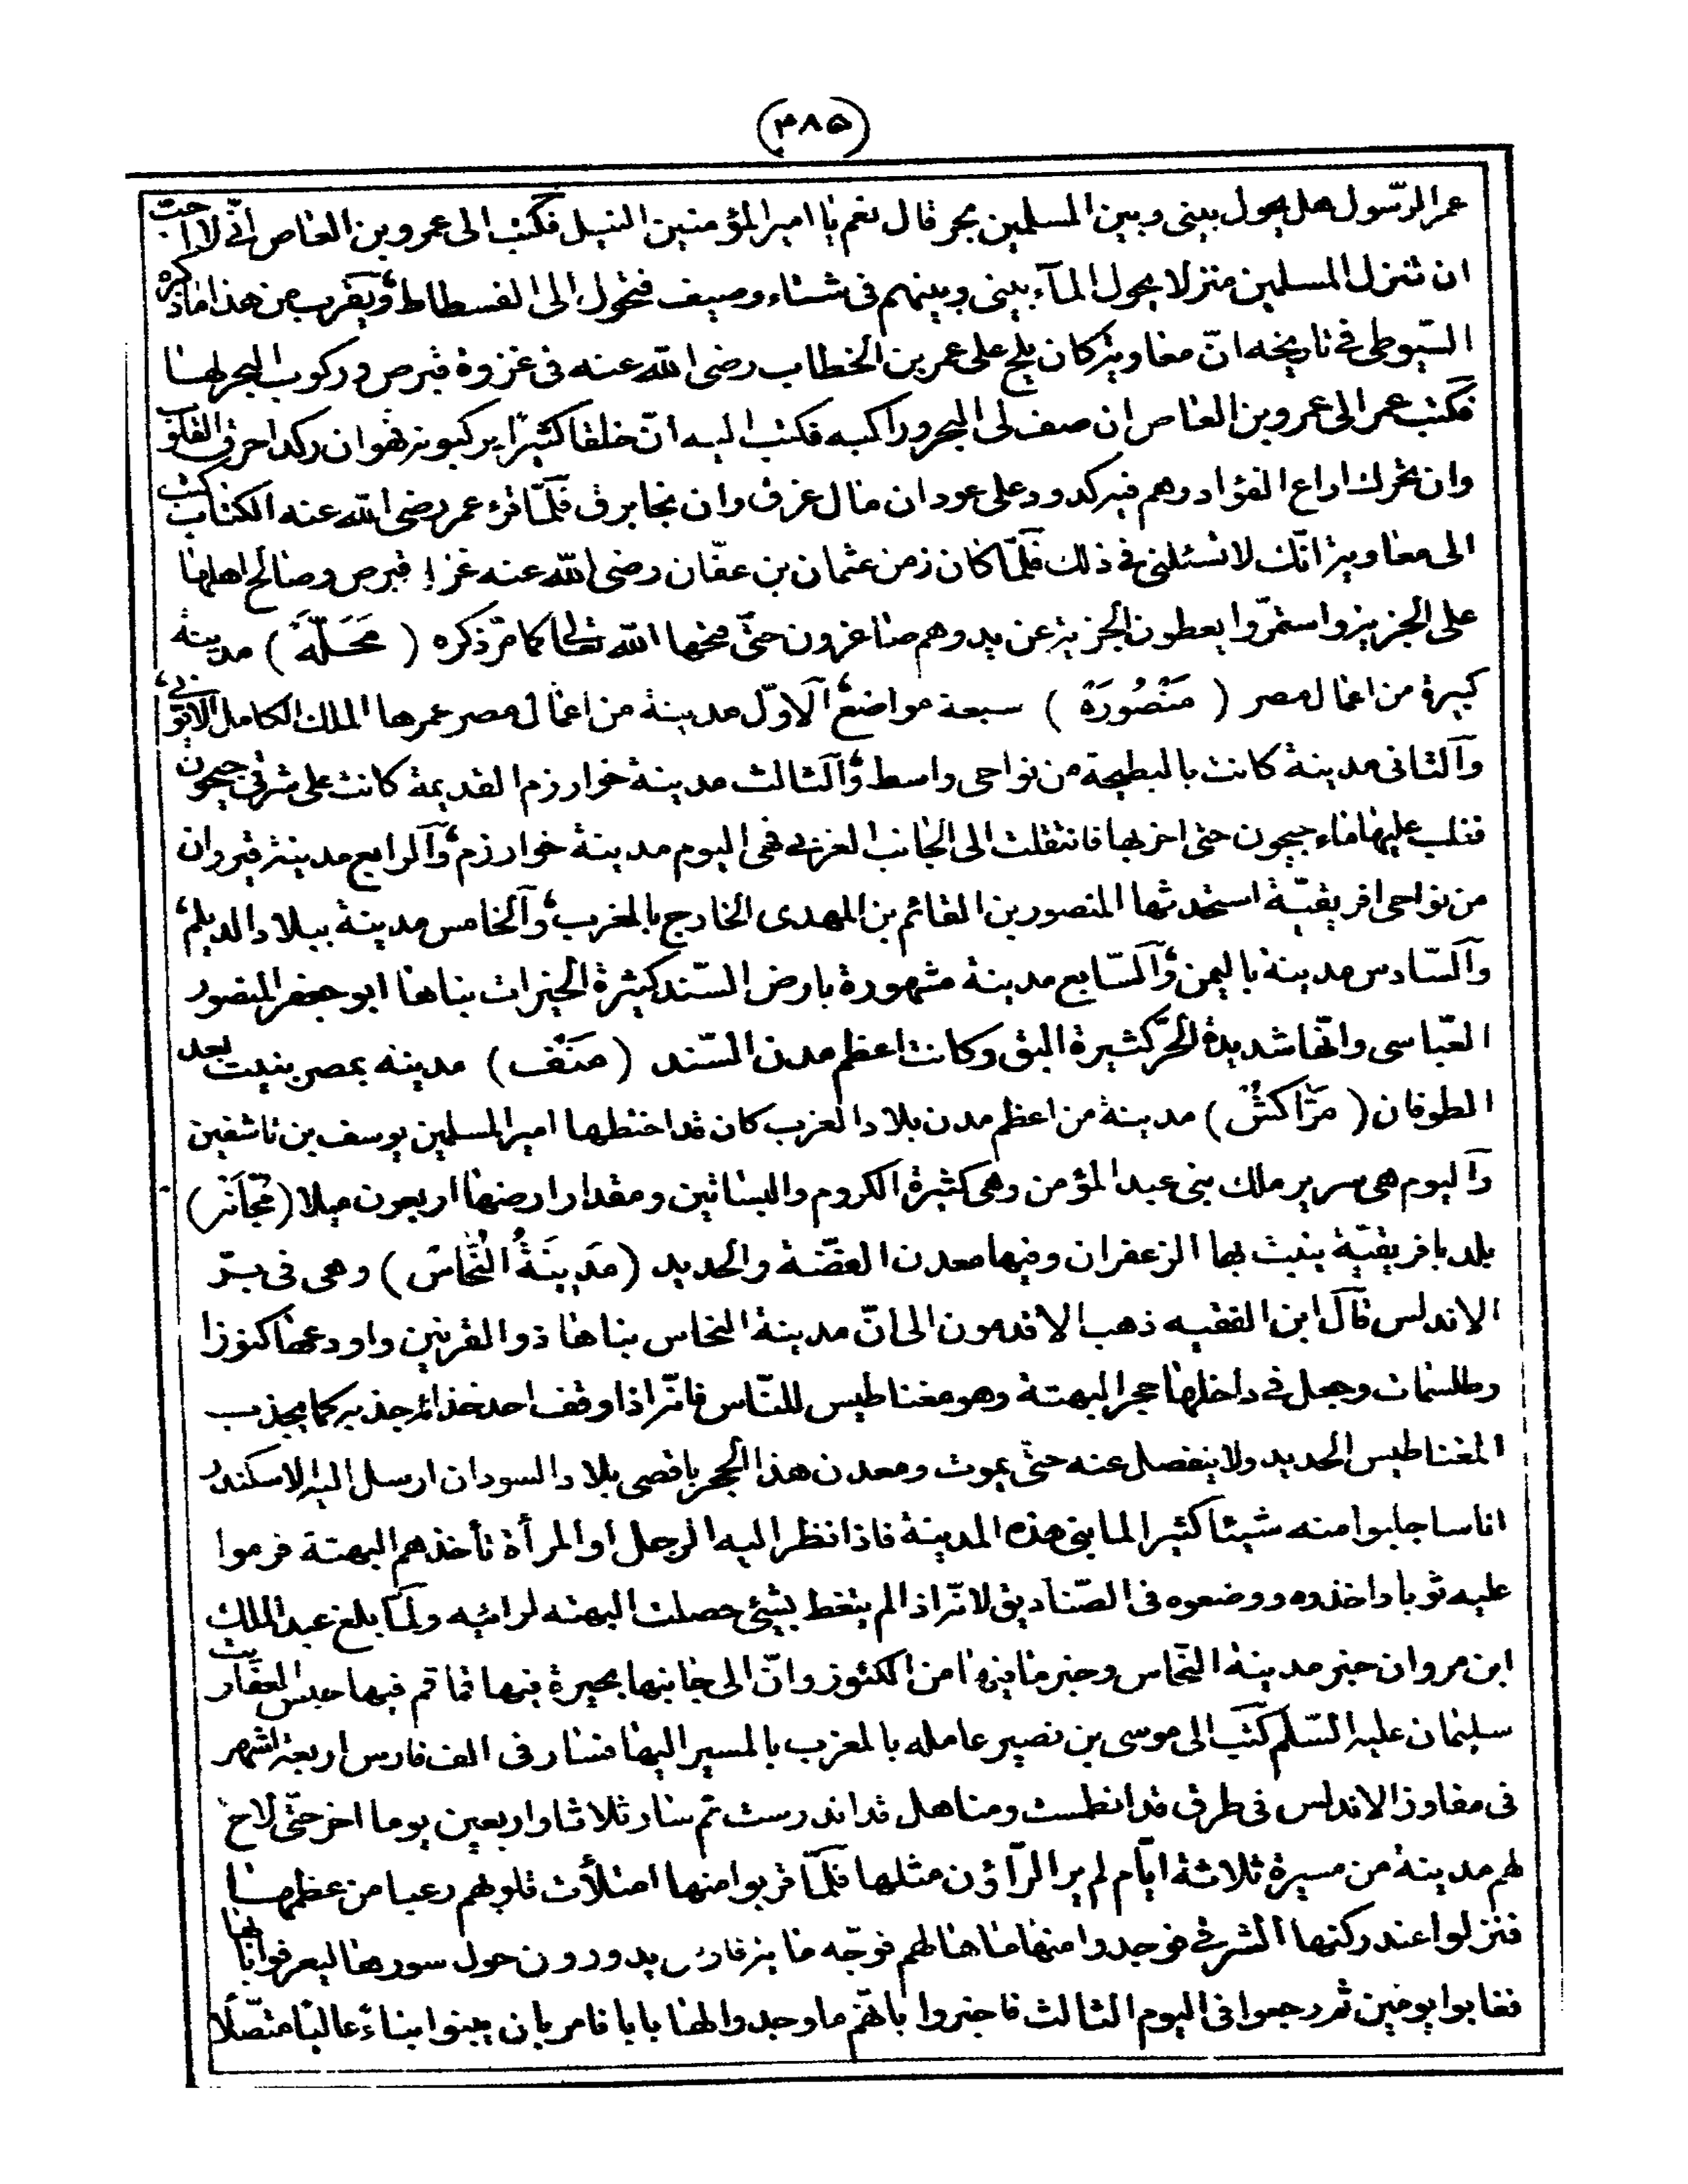 (٣٨٥)
عمر الرّسول هل يحول بينى وبين المسلمين بحر قال نعم يا امير المؤمنين النيل فكتب الى عمرو بن العاص انّى لا احبّ
ان تنزل المسلمين منزلا يحول المآء بينى وبينهم فى شتاء وصيف فتحول الى الفسطاط ويقرب من هذا ما ذكره
السّيوطى فى تاريخه انّ معاوية كان يلح على عمر بن الخطاب رضى الله عنه فى غزوة قبرص وركوب البحر لها
فكتب عمر الى عمرو بن العاص ان صف لى البحر وراكبه فكتب اليه انّ خلقا كثيرًا يركبونه فهو ان ركد احرق القلوب
وان تحرك اراع الفؤاد وهم فيه كدود على عود ان مال غرق وان نجا برق فلمّا قرء عمر رضى الله عنه الكتاب كتب
الى معاوية انّك لا تسئلنى فى ذلك فلمّا كان زمن عثمان بن عفّان رضى الله عنه غزا قبرص وصالح اهلها
على الجزية واستمرّوا يعطون الجزية عن يد وهم صاغرون حتّى فتحها الله تعالى كما مرّ ذكره ( مَحَلَّةُ ) مدينة
كبيرة من اعمال مصر ( مَنْصُورَةُ ) سبعة مواضع الاوّل مدينة من اعمال مصر عمرها الملك الكامل الايّوبى
وآلثانى مدينة كانت بالبطيحة من نواحى واسط وآلثالث مدينة خوارزم القديمة كانت على شرقى جيحون
فغلب عليها ماء جيحون حتى اخربها فانتقلت الى الجانب الغربى فهى اليوم مدينة خوارزم وآلرابع مدينة قيروان
من نواحى افريقيّة استحدثها المنصور بن القائم بن المهدى الخارج بالمغرب وآلخامس مدينة ببلاد الديلم
وآلسّادس مدينة باليمن وآلسّابع مدينة مشهورة بارض السّند كثيرة الخيرات بناها ابو جعفر المنصور
العبّاسى وانّها شديدة الحرّ كثيرة البق وكانت اعظم مدن السّند ( مَنَفْ ) مدينة بمصر بنيت بعد
الطوفان ( مَرَّاكشُ ) مدينة من اعظم مدن بلاد الغرب كان قد اختطها امير المسلمين يوسف بن تاشفين
وآليوم هى سرير ملك بنى عبد المؤمن وهى كثيرة الكروم والبساتين ومقدار ارضها اربعون ميلا ( مجّانَة )
بلد بافريقيّة ينبت بها الزعفران وفيها معدن الفضّة والحديد ( مَدِينَةُ النُّحَاسْ ) وهى فى برّ
الاندلس قآل ابن الفقيه ذهب الاقدمون الى انّ مدينة النحاس بناها ذو القرنين واودعها كنوزا
وطلسمات وجعل فى داخلها حجر البهتة وهو مغناطيس للنّاس فانّه اذا وقف احد حذائه جذبه كما يجذب
المغناطيس الحديد ولا ينفصل عنه حتّى يموت ومعدن هذا الحجر باقصى بلاد السودان ارسل اليه الاسكندر
اناسا جلبوا منه شيئا كثيرا لما بنى هذه المدينة فاذا نظر اليه الرجل او المرأة تأخذهم البهتة فرموا
عليه ثوبا واخذوه ووضعوه فى الصّناديق لانّه اذا لم يتغط بشئ حصلت البهته لرائيه ولمّا بلغ عبد الملك
ابن مروان خبر مدينة النّحاس وخبر ما فيها من الكنوز وانّ الى جانبها بحيرة فيها قماقم فيها حبس العفاريت
سليمان عليه السّلم كتب الى موسى بن نصير عامله بالمغرب بالمسير اليها فسار فى الف فارس اربعة اشهر
فى مفاوز الاندلس فى طرق قد انطمست ومناهل قد اندرست ثم سار ثلاثا واربعين يوما اخر حتّى لاح
لهم مدينة من مسيرة ثلاثة ايّام لم ير الرّآؤن مثلها فلمّا قربوا منها امتلأت قلوبهم رعبا من عظمها
فنزلوا عند ركنها الشرقى فوجدوا منها ما هالهم فوجّه مائة فارس يدورون حول سورها ليعرفوا بابها
فغابوا يومين ثم رجعوا فى اليوم الثالث فاخبروا بانّهم ما وجدوا لها بابا فامر بان يبنوا بناءً عاليًا متّصلًا